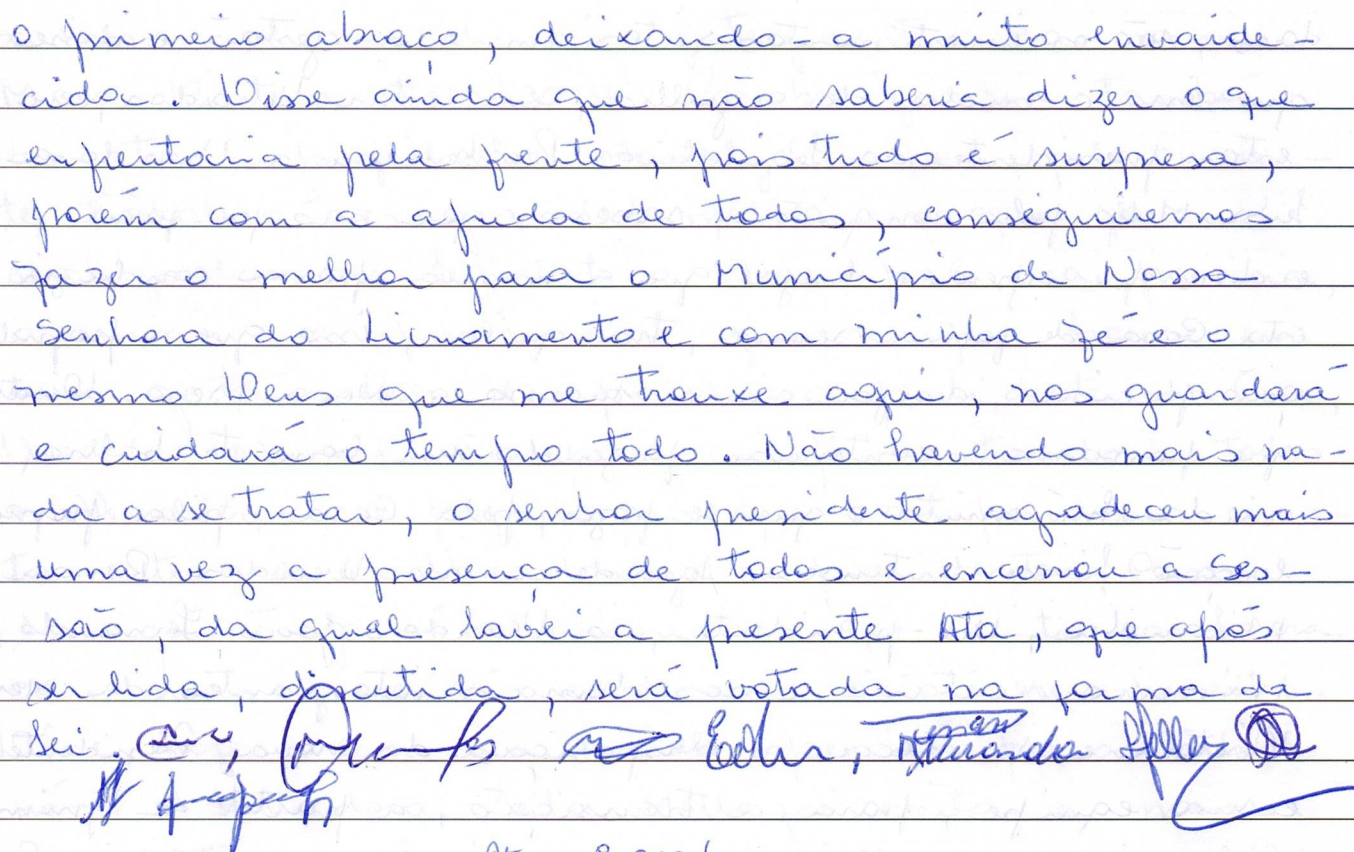 o primeiro abraço, deixando-a muito envaide-
cida. Disse ainda que não saberia dizer o que
enfrentaria pela frente, pois tudo é surpresa,
porém com a ajuda de todos, conseguiremos
fazer o melhor para o Município de Nossa
Senhora do Livramento e com minha fé é o
mesmo Deus que me trouxe aqui, nos guardará
e cuidará o tempo todo. Não havendo mais na-
da a se tratar, o senhor presidente agradeceu mais
uma vez a presença de todos e encerrou a Ses-
são, da qual lavrei a presente Ata, que após
ser lida, discutida, será votada na forma da
Lei.